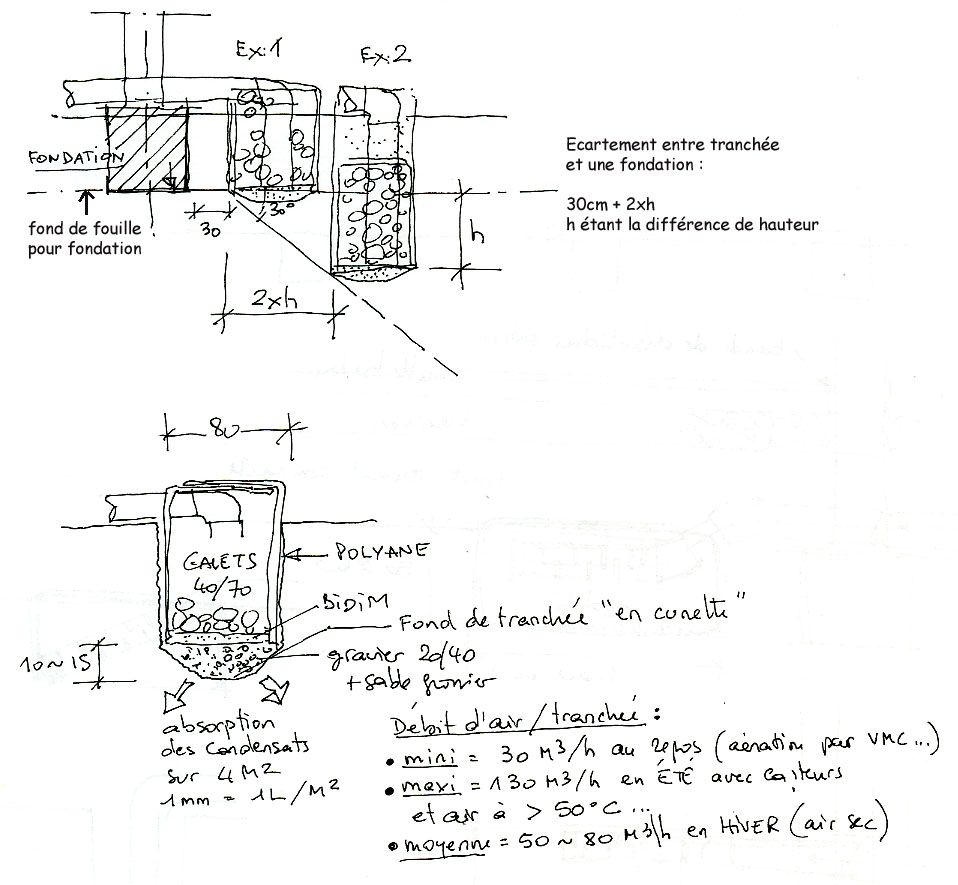 Ex:1
Ex:2
FONDATION
fond de fouille
pour fondation
30
30°
h
2xh
Ecartement entre tranchée
et une fondation :
30cm + 2xh
h étant la différence de hauteur
80
GALETS
40/70
POLYANE
BIDIM
Fond de tranchée "en cunette"
gravier 20/40
+ sable grossier
10~15
absorption
des condensats
sur 4M2
1mm = 1L/M²
Débit d'air/tranchée :
• mini = 30 M3/h au repos (aération par VMC...)
• maxi = 130 M3/h en ÉTÉ avec capteurs
et air à > 50°C...
• moyenne = 50 ~ 80 M3/h en HIVER (air sec)